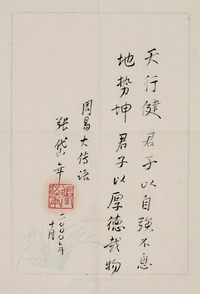 天行健 君子以自強不息
地势坤 君子以厚德载物
周易大传语
张岱年
二〇〇〇年
十月